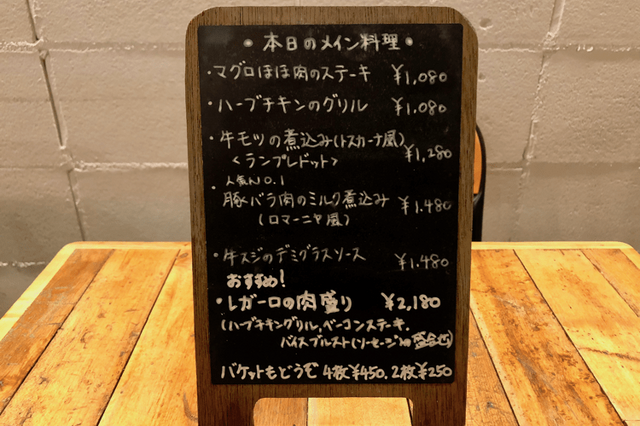 ・本日のメイン料理・
・マグロほほ肉のステーキ ¥1,080
・ハーブチキンのグリル ¥1,080
・牛モツの煮込み(トスカーナ風) ¥1,280
<ランプレドット>
人気NO.1
・豚バラ肉のミルク煮込み ¥1.480
(ロマーニャ風)
・牛スジのデミグラスソース ¥1.480
おすすめ!
・レガーロの肉盛り ¥2,180
(ハーブチキングリル,ベーコンステーキ.
バイスブルスト(ソーセージ)の盛合せ)
バケットもどうぞ 4枚¥450. 2枚¥250